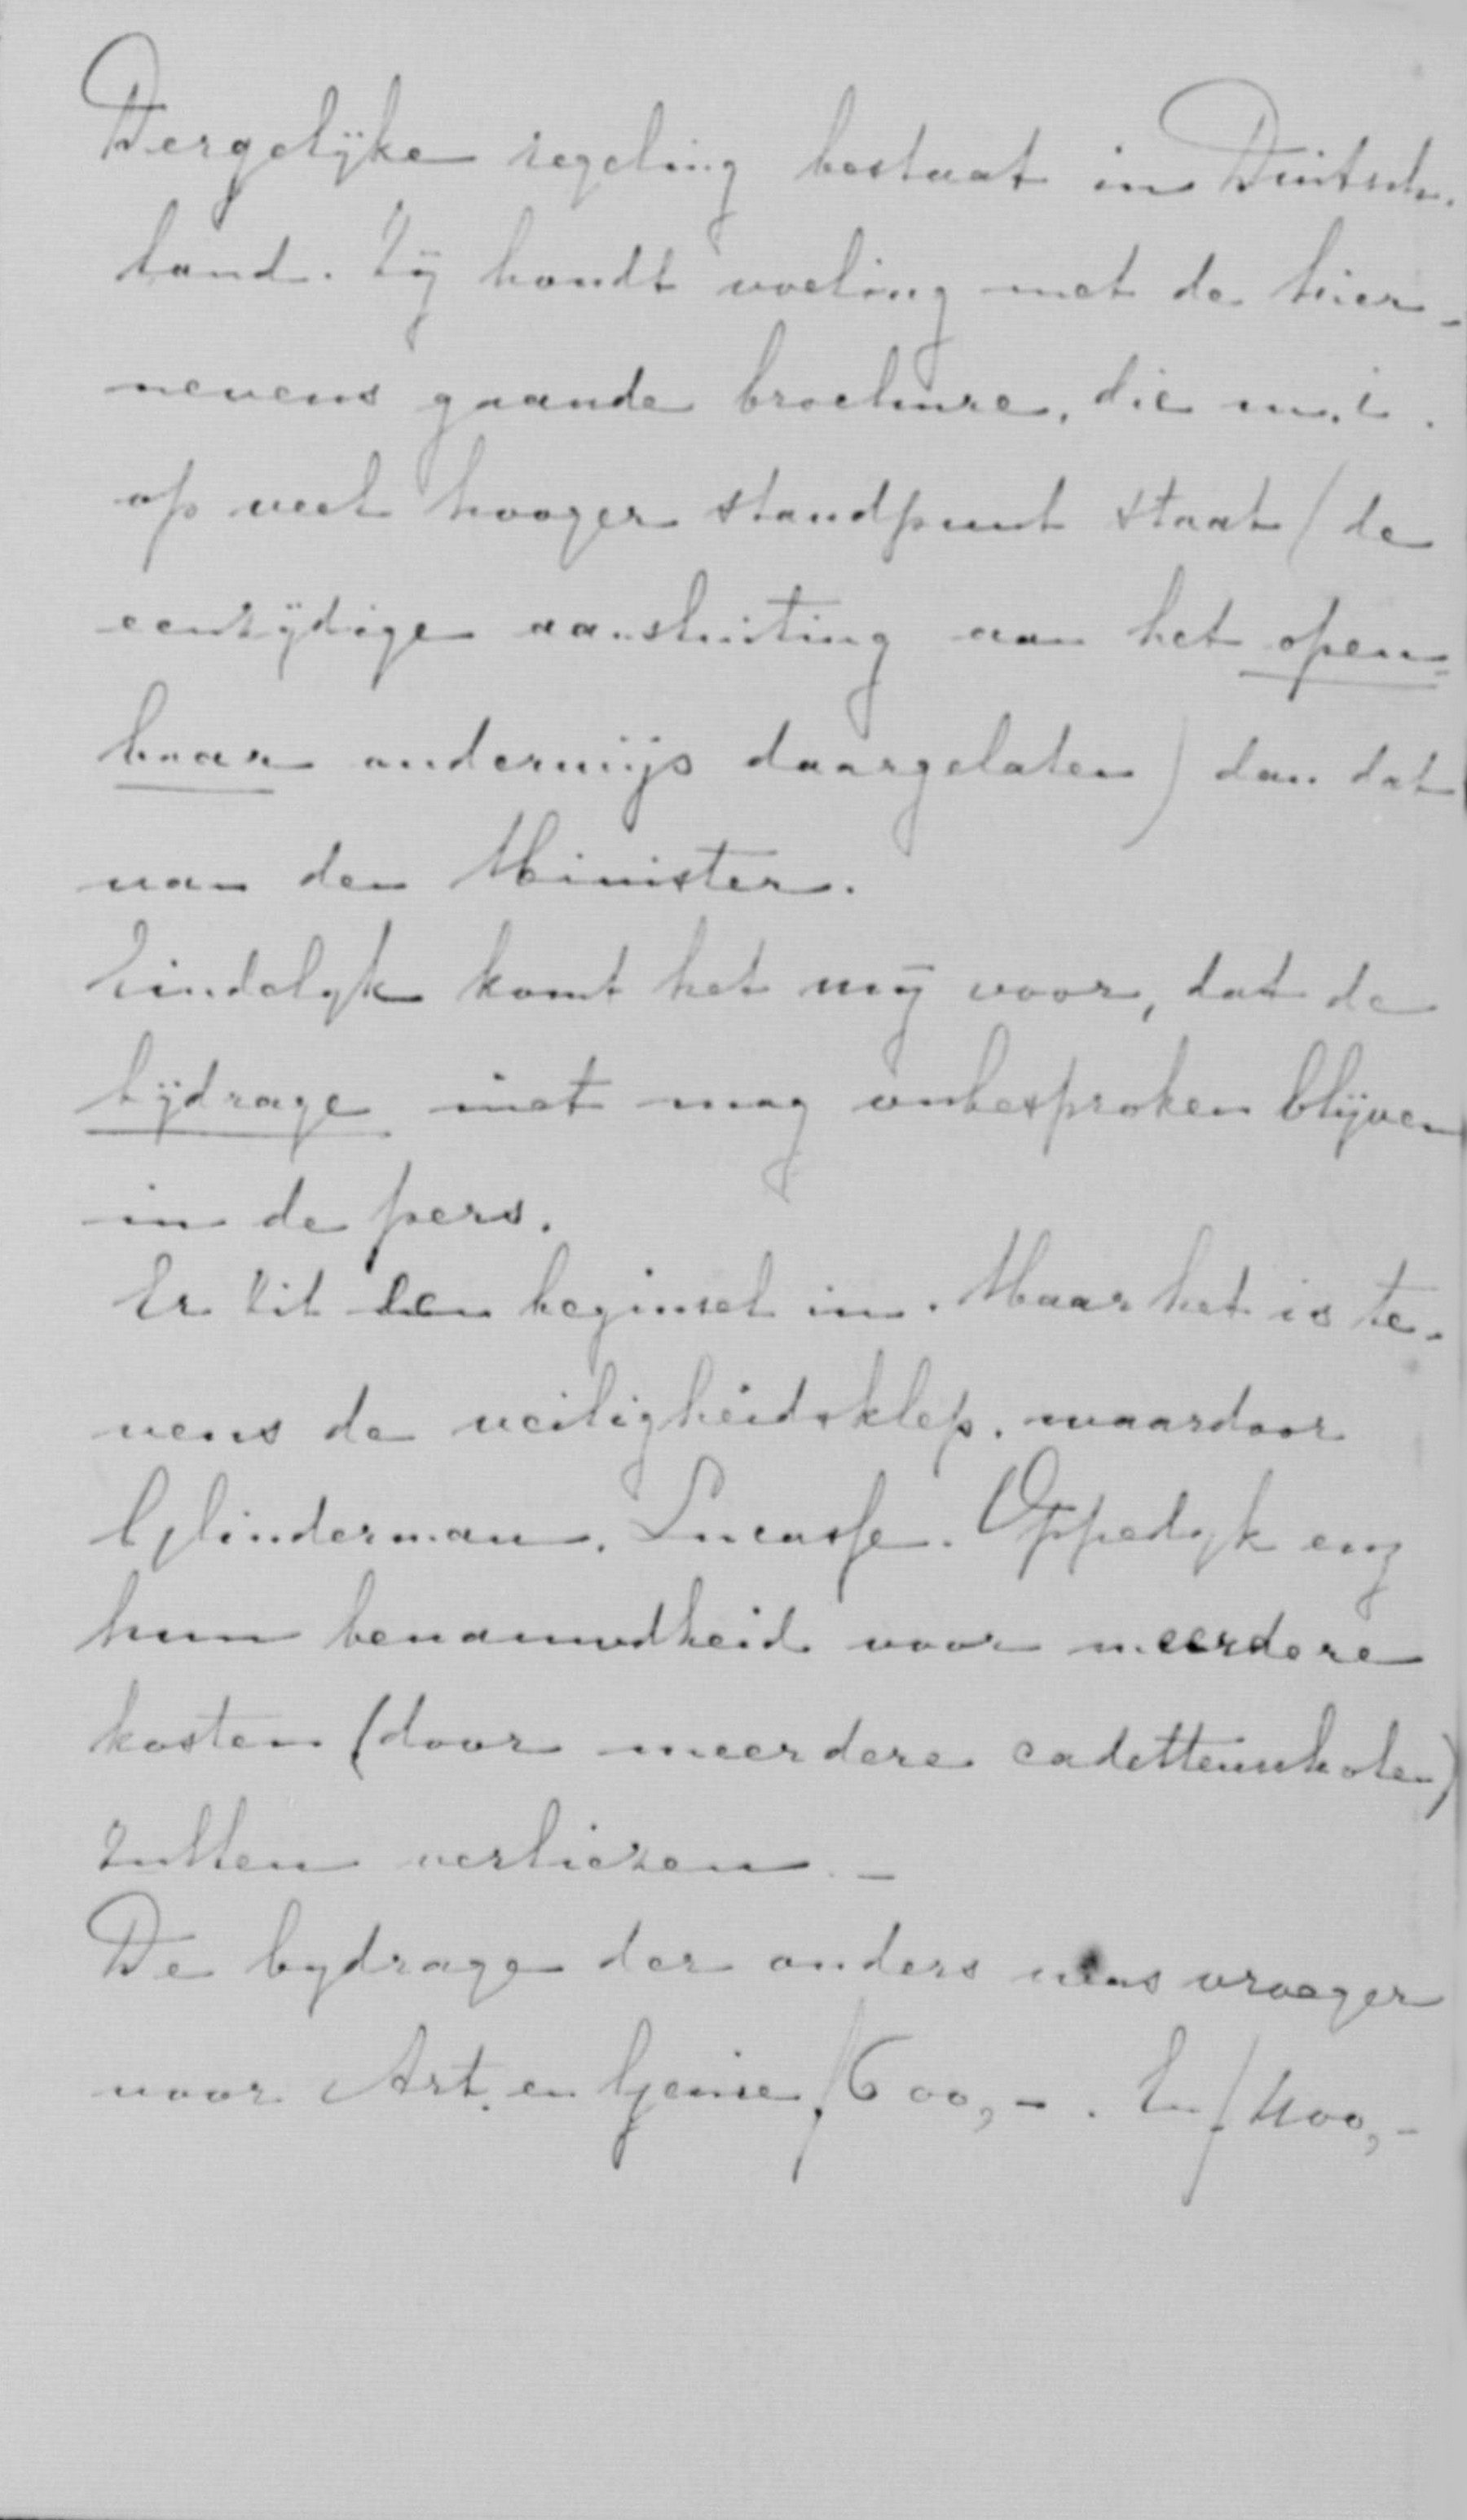 Dergelijke regeling bestaat in Duitsch-
land. Zij houdt voeling met de hier-
nevens gaande brochure, die m.i.
op veel hooger standpunt staat (de
eenzijdige aansluiting aan het open-
baar onderwijs daargelaten) dan dat
van den Minister.
Eindelyk komt het mij voor, dat de
bijdrage niet mag onbesproken blijven
in de pers.
Er zit een beginsel in. Maar het is te-
vens de veiligheidsklep, waardoor
Lucasse. Oppedyk enz
hun benauwdheid voor meerdere
kosten (door meerdere cadettenscholen)
zullen verliezen. -
De bydrage der ouders was vroeger
voor Art. en Genie f600,-. En f400,-